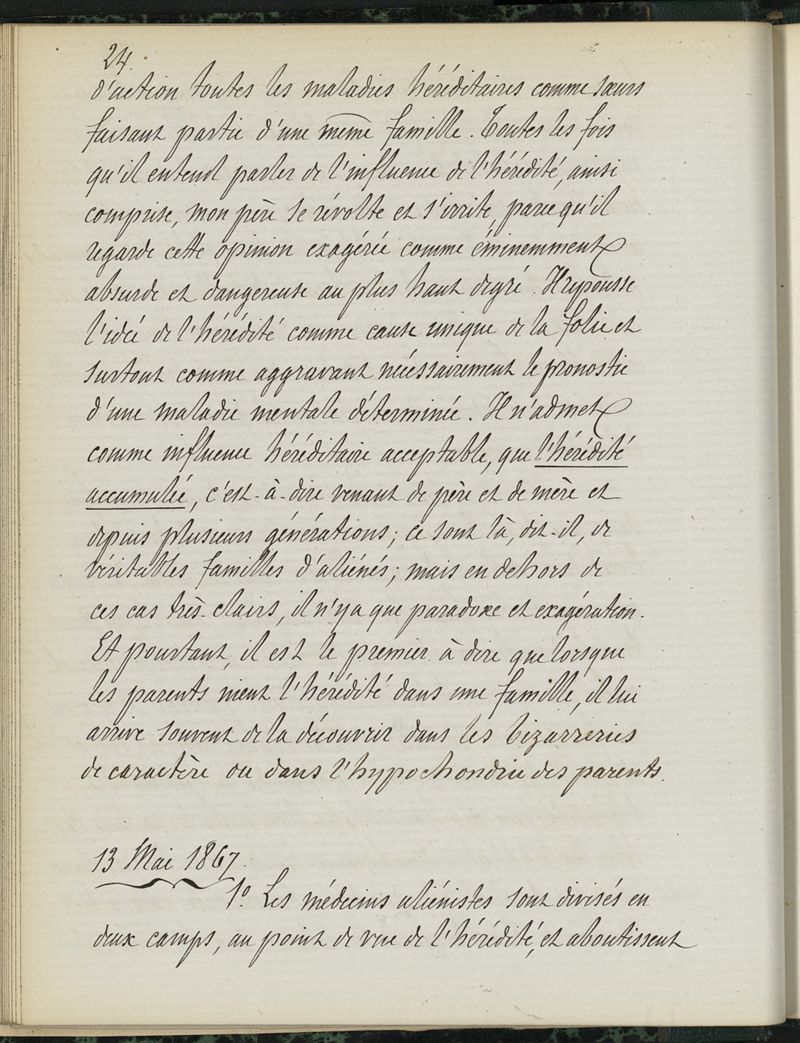 24.
d'action toutes les maladies héréditaires comme sœurs
faisant partie d'une même famille. Toutes les fois
qu'il entend parler de l'influence de l'hérédité, ainsi
comprise, mon père se révolte et s'irrite, parce qu'il
regarde cette opinion exagérée comme éminemment
absurde et dangereuse au plus haut degré. Il repousse
l'idée de l'hérédité comme cause unique de la folie et
surtout comme aggravant nécessairement le pronostic
d'une maladie mentale déterminée. Il n'admet
comme influence héréditaire acceptable, que l'hérédité
accumulée, c'est-à-dire venant de père et de mère et
depuis plusieurs générations; ce sont là, dit-il, de
véritables familles d'aliénés; mais en dehors de
ces cas très-clairs, il n'y a que paradoxe et exagération.
Et pourtant, il est le premier à dire que lorsque
les parents nient l'hérédité dans une famille, il lui
arrive souvent de la découvrir dans les bizarreries
de caractère ou dans l'hypochondrie des parents.
13 Mai 1867.
1º. Les médecins aliénistes sont divisés en
deux camps, au point de vue de l'hérédité, et aboutissent